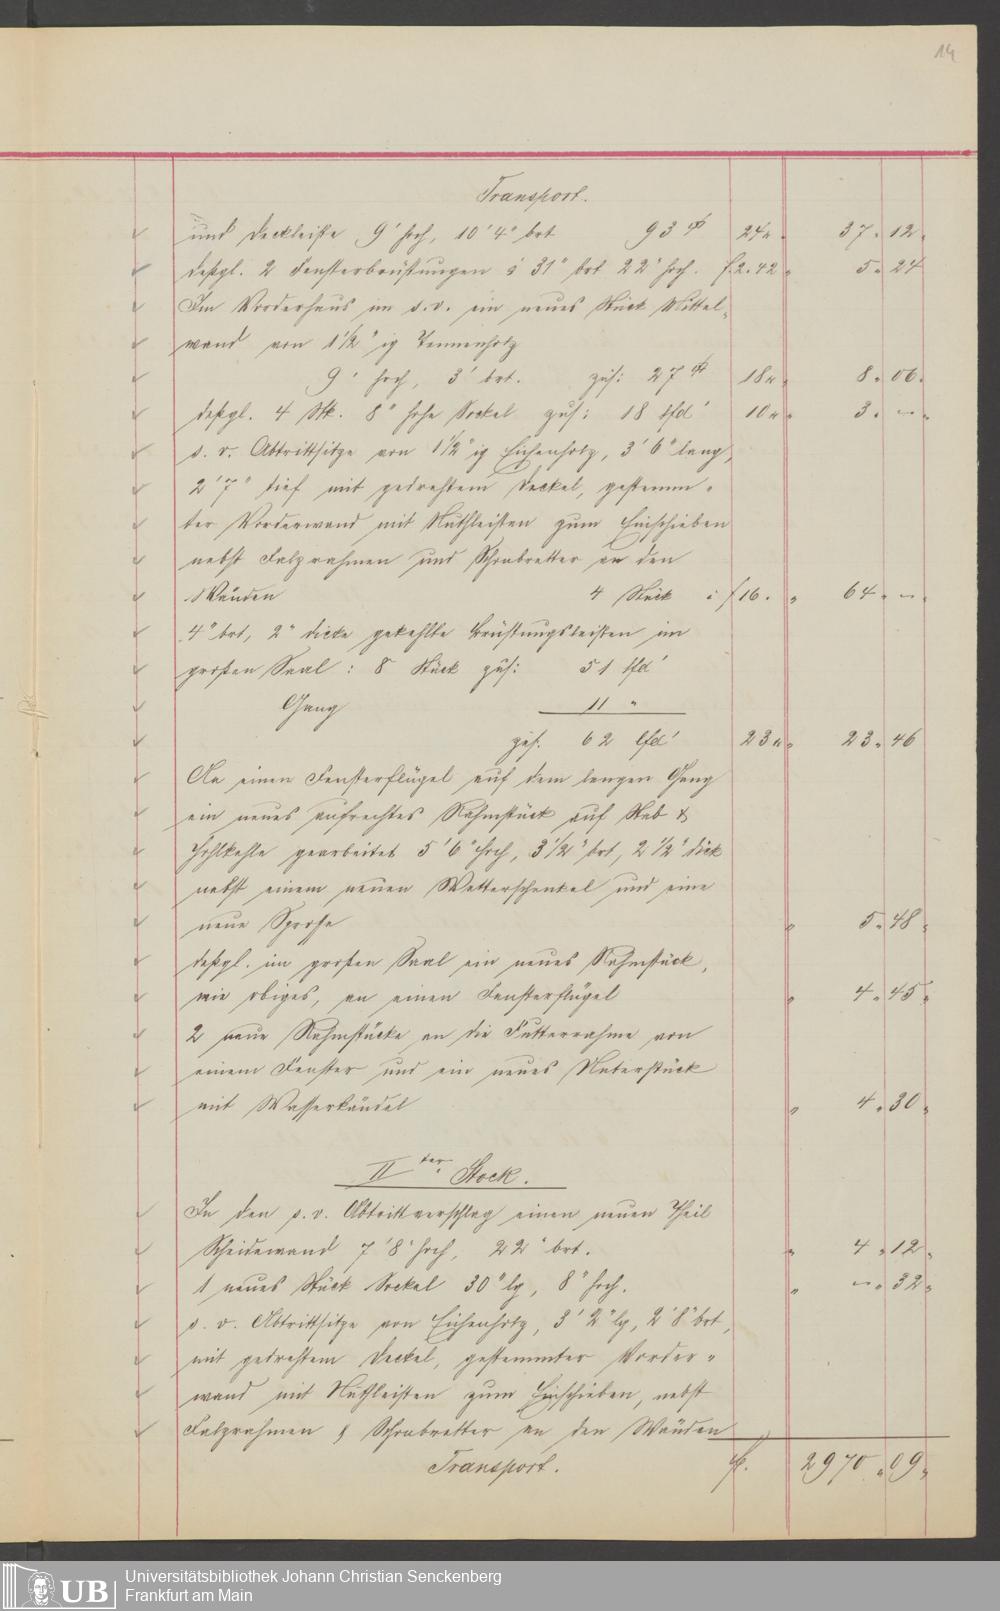 14
Transport.
und Deckleiste 9' hoch, 10'4" brt 93 24 " 37. 12.
deßgl. 2 Fensterbrüstungen à 31" brt 22" hoch. f. 2.42 " 5. 24
Im Vorderhaus im ein neues Stück Mittel-
wand von 1 1/2" ig Tannenholz
9' hoch, 3' brt. zus: 27 18 " 8. 06.
deßgl. 4 Stk. 8" hohe Sockel zus: 18 lfd' 10 " 3. –.
s. v. Abtrittsitze von 1 1/2" ig Eichenholz, 3'6" lang,
2'7" tief mit gedrehtem Deckel, gestemm-
ter Vorderwand mit Nuthleisten zum Einschieben
nebst Falzrahmen und an den
Wänden 4 Stück à f 16. " 64. –.
4" brt, 2" dicke gekehlte Brüstungsleisten im
großen Saal: 8 Stück zus: 51 lfd'
Gang 11 "
zus. 62 lfd' 23 " 23. 46
An einen Fensterflügel auf dem langen Gang
ein neues aufrechtes Rahmstück auf Stab &
Hohlkehle gearbeitet 5'6" hoch, 3 1/2" brt, 2 1/2" dick
nebst einem neuen Wetterschenkel und eine
neue Sprosse " 5. 48.
deßgl. im großen Saal ein neues Rahmstück,
wie obiges, an einen Fensterflügel " 4. 45.
2 neue Rahmstücke an die Futterrahme von
einem Fenster und ein neues Unterstück
mit Wasserkändel " 4. 30.
II ter Stock.
In den s. v. Abtrittverschlag einen neuen Theil
Scheidewand 7'8" hoch, 22" brt. " 4. 12.
1 neues Stück Sockel 30" lg, 8" hoch. " –. 32.
s. v. Abtrittsitze von Eichenholz, 3'2" lg, 2'8" brt,
mit gedrehtem Deckel, gestemmter Vorder-
wand mit Nuthleisten zum Einschieben, nebst
Falzrahmen & an den Wänden
Transport. f. 2970. 09.
UB
Universitätsbibliothek Johann Christian Senckenberg
Frankfurt am Main